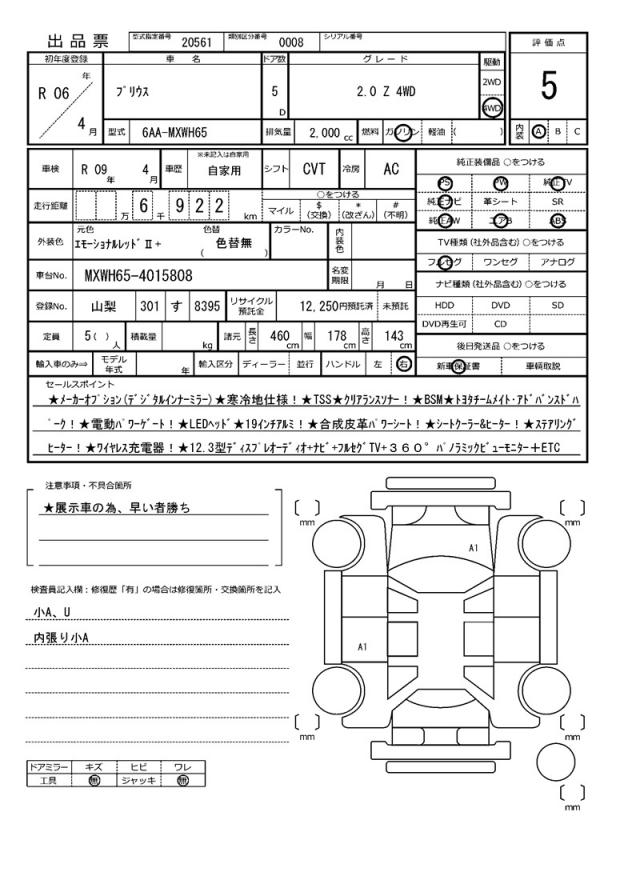 出品票 型式指定番号 20561 類別区分番号 0008 シリアル番号
評価点
初年度登録 車名 ドア数 グレード 駆動
R 06 年 4 月 プリウス 5 D 2.0 Z 4WD 2WD 4WD
5
型式 6AA-MXWH65 排気量 2,000 cc 燃料 ガソリン 軽油 ( ) 内装 A B C
車検 R 09 年 4 月 車歴 ※未記入は自家用 自家用 シフト CVT 冷房 AC
純正装備品 ○をつける
PS PW 純正TV
純正ナビ 革シート SR
純正AW エアB ABS
走行距離 万 6 千 9 2 2 km ○をつける
マイル $(交換) *(改ざん) #(不明)
外装色 元色 エモーショナルレッドⅡ+ 色替 ( 色替無 ) カラーNo. 内装色
TV種類 (社外品含む) ○をつける
フルセグ ワンセグ アナログ
車台No. MXWH65-4015808 名変期限 月 日
ナビ種類 (社外品含む) ○をつける
登録No. 山梨 301 す 8395 リサイクル預託金 12,250円預託済 未預託
HDD DVD SD
DVD再生可 CD
定員 5( ) 人 積載量 kg 諸元 長さ 460 cm 幅 178 cm 高さ 143 cm
後日発送品 ○をつける
輸入車のみ⇒ モデル年式 年 輸入区分 ディーラー 並行 ハンドル 左 右
新車保証書 車輌取説
セールスポイント
★メーカーオプション(デジタルインナーミラー)★寒冷地仕様!★TSS★クリアランスソナー!★BSM★トヨタチームメイト・アドバンスドパ
ーク!★電動パワーゲート!★LEDヘッド★19インチアルミ!★合成皮革パワーシート!★シートクーラー&ヒーター!★ステアリング
ヒーター!★ワイヤレス充電器!★12.3型ディスプレオーディオ+ナビ+フルセグTV+360°パノラミックビューモニター+ETC
注意事項・不具合箇所
★展示車の為、早い者勝ち
検査員記入欄:修復歴「有」の場合は修復箇所・交換箇所を記入
小A、U
内張り小A
ドアミラー キズ ヒビ ワレ
工具 無 ジャッキ 無
[ ] mm
[ ] mm
A1
A1
[ ] mm
[ ] mm
[ ] mm